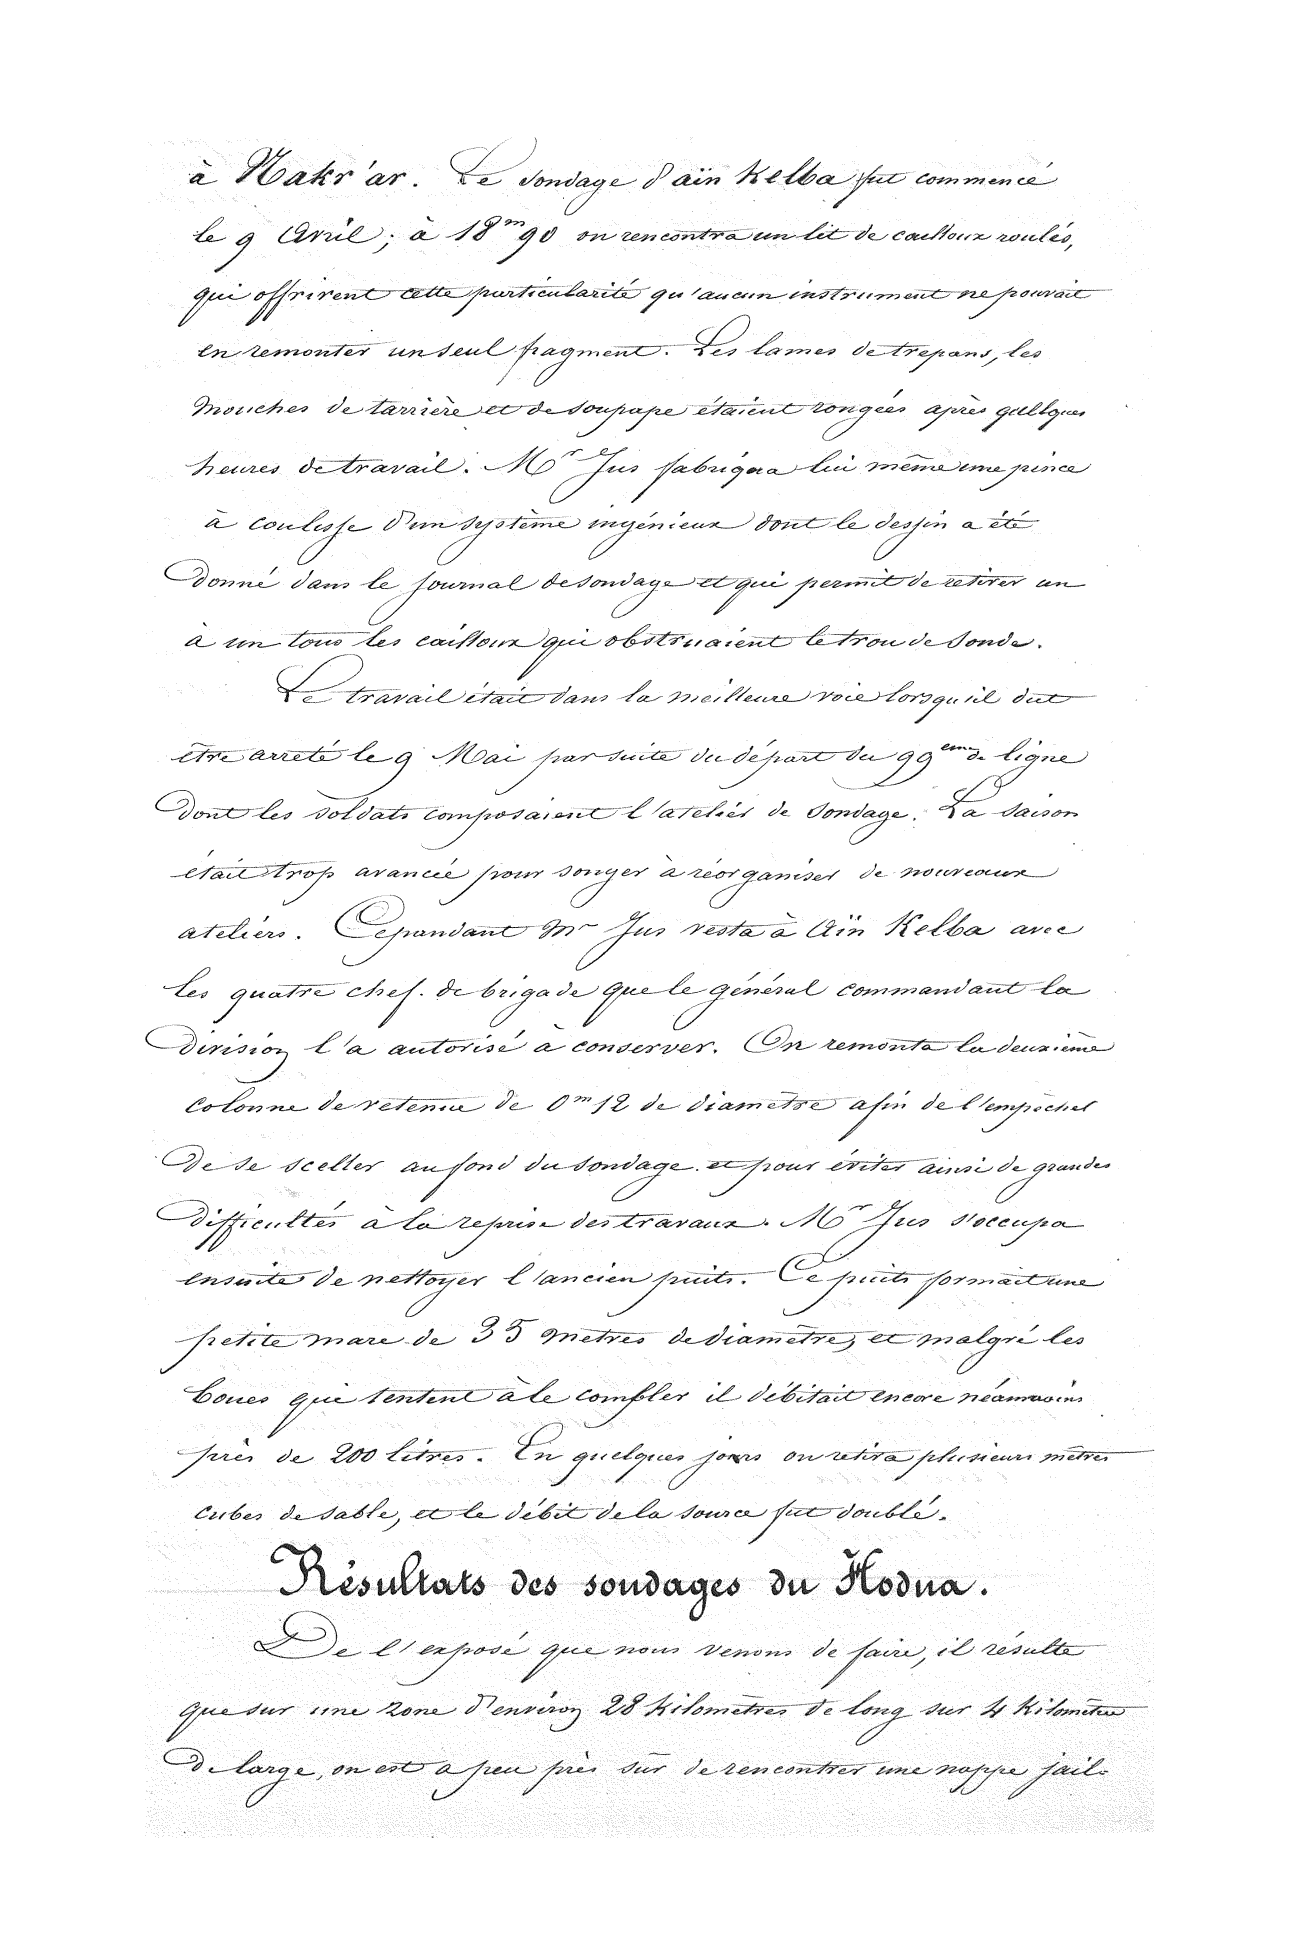 à Makr'ar. Le sondage d'aïn Kelba fut commencé
le 9 Avril; à 18m90 on rencontra un lit de cailloux roulés,
qui offrirent cette particularité qu'aucun instrument ne pouvait
en remonter un seul fragment. Les lames de trepans, les
mouches de tarrière et de soupape étaient rongées après quelques
heures de travail. Mr Jus fabriqua lui même une pince
à coulisse d'un système ingénieux dont le dessin a été
donné dans le journal de sondage et qui permit de retirer un
à un tous les cailloux qui obstruaient le trou de sonde.
Le travail était dans la meilleure voie lorsqu'il dut
être arreté le 9 Mai par suite du départ du 99eme de ligne
dont les soldats composaient l'atelier de sondage. La saison
était trop avancée pour songer à réorganiser de nouveaux
ateliers. Cependant Mr Jus resta à Aïn Kelba avec
les quatre chef. de brigade que le général commandant la
division l'a autorisé à conserver. On remonta la deuxième
colonne de retenue de 0m12 de diamètre afin de l'empêcher
de se sceller au fond du sondage et pour éviter ainsi de grandes
difficultés à la reprise des travaux. Mr Jus s'occupa
ensuite de nettoyer l'ancien puits. Ce puits formait une
petite mare de 35 mètres de diamètre, et malgré les
boues qui tentent à le combler il débitait encore néanmoins
près de 200 litres. En quelques jours on retira plusieurs mètres
cubes de sable, et le débit de la source fut doublé.
Résultats des sondages du Hodna.
De l'exposé que nous venons de faire, il résulte
que sur une zone d'environ 28 Kilomètres de long sur 4 Kilomètres
de large, on est à peu près sûr de rencontrer une nappe jail-